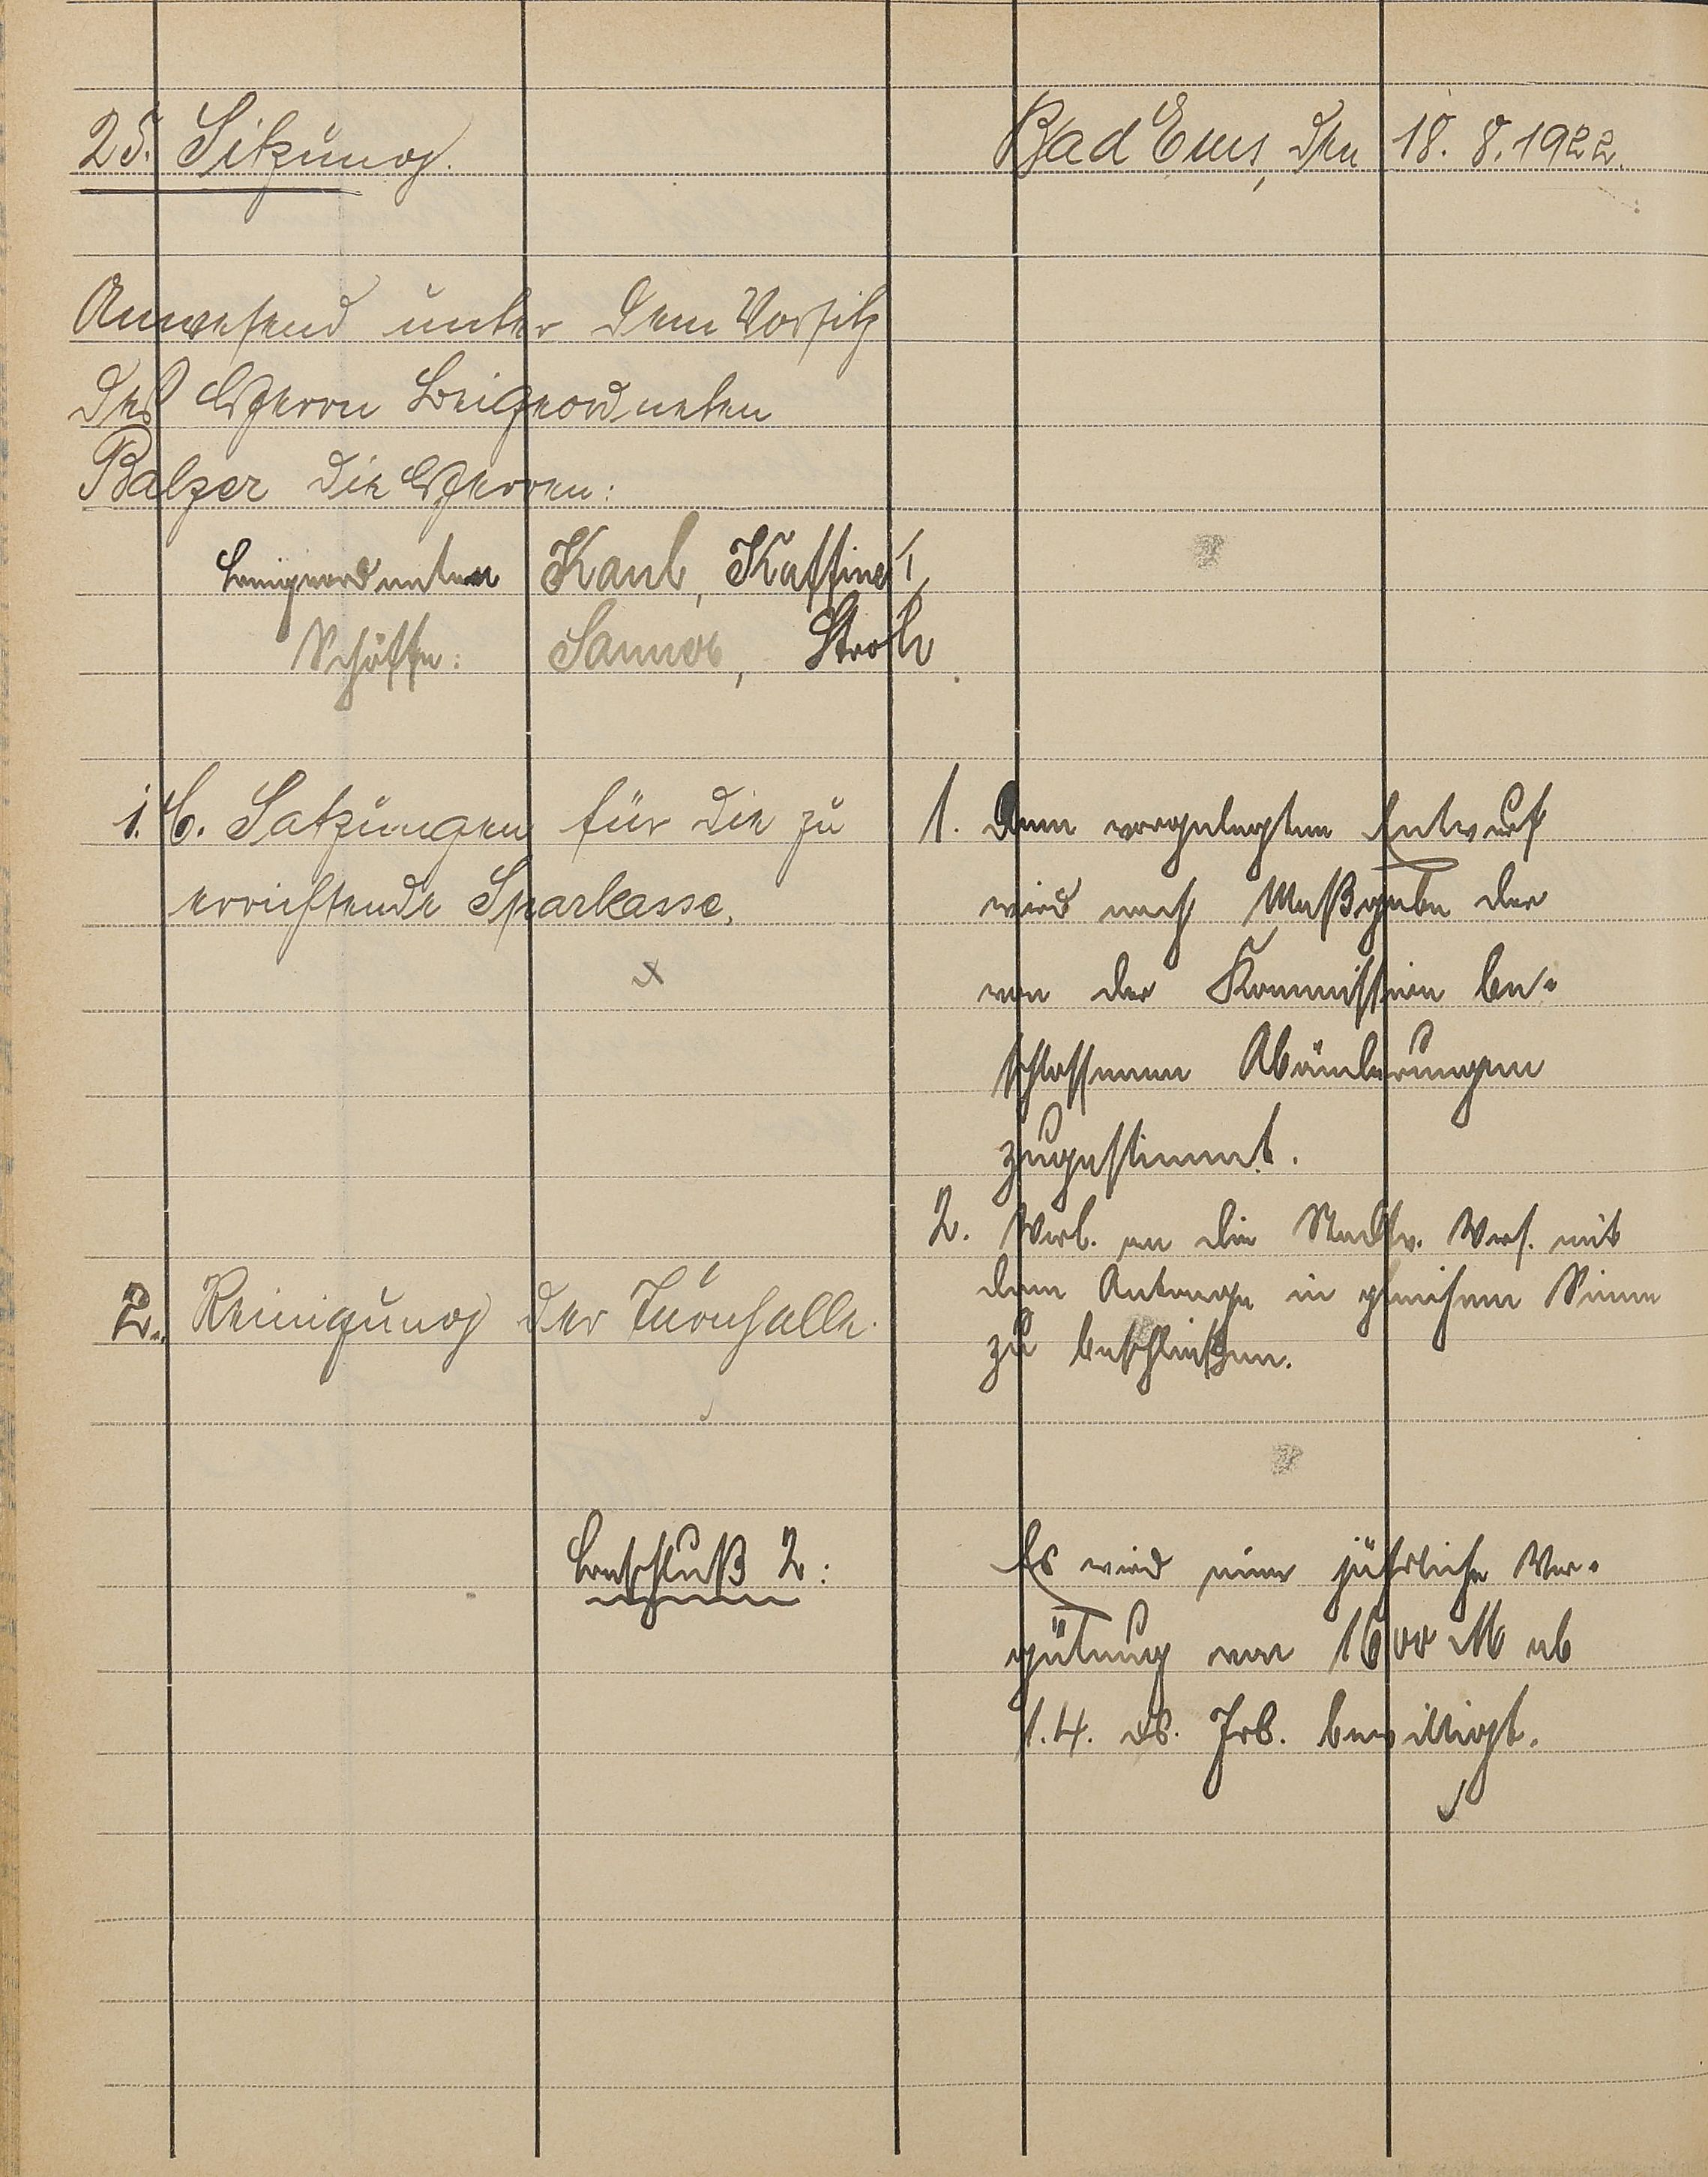 25. Sitzung.
Bad Ems, den 18. 8. 1922.
Anwesend unter dem Vorsitz
des Herrn Beigeordneten
Balzer die Herren:
Beigeordneten Kaul, Kaffine
Schöffen: Sannor, Stroh
1. C. Satzungen für die zu
errichtende Sparkasse.
1. Dem vorgelegten Entwurf
wird nach Maßgabe der
von der Kommission be-
schlossenen Abänderungen
zugestimmt.
2. Vorl. an die Stadtv. Vers. mit
dem Antrage in gleichem Sinne
zu beschließen.
2. Reinigung der Turnhalle.
Beschluß 2:
Es wird eine jährliche Ver-
gütung von 1600 M ab
1.4. ds. Jrs. bewilligt.